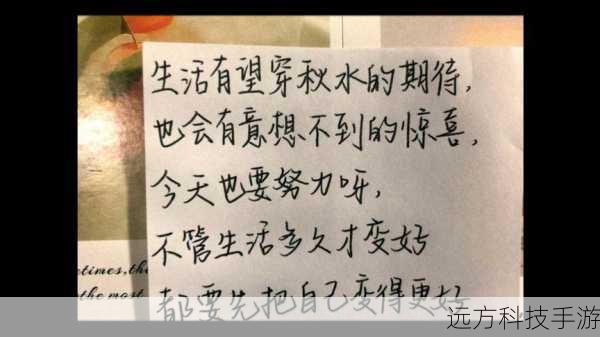 生活有望穿秋水的期待，
也会有意想不到的惊喜，
今天也要努力呀，
不管生活多久才变好
都要先把自己变得更好
etimes, the
the most
远方科技手游